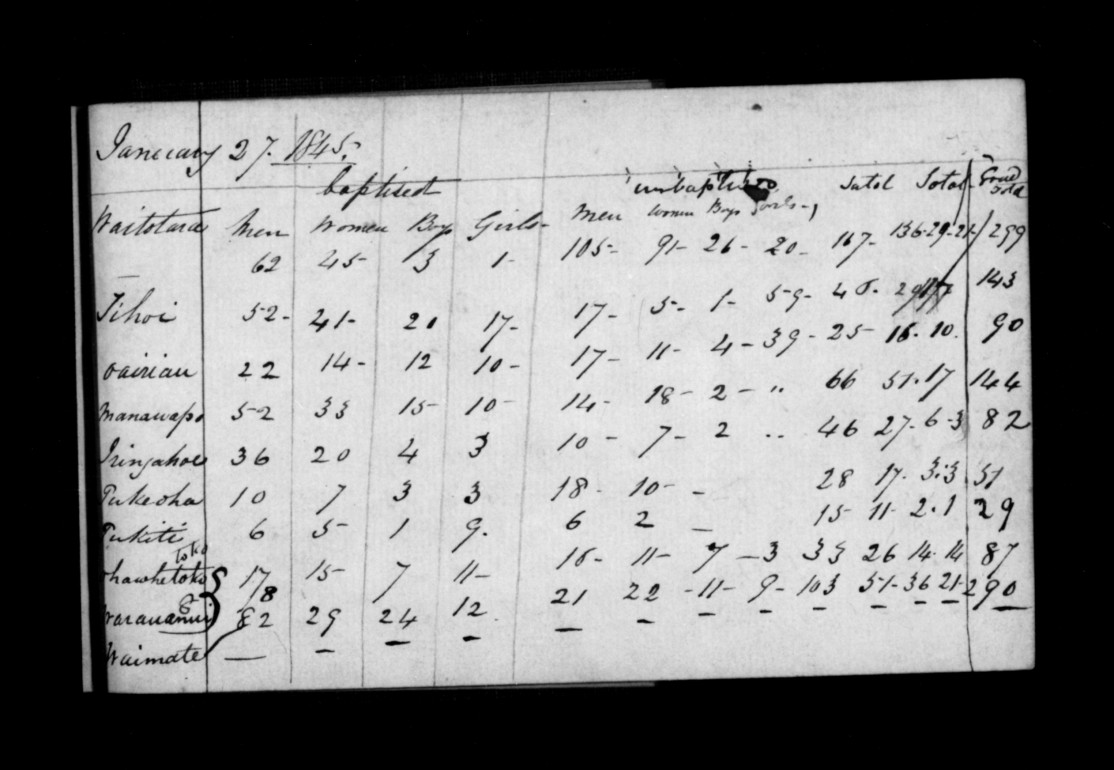 January 27. 1845.
baptised unbaptised Total Total Grand Total
Waitotara Men Women Boys Girls Men Women Boys Girls
62 45 3 1 105 91 26 20 167 136 29 21 299
Tihoi 52 41 20 17 17 5 1 59 46 143
22 14 12 10 17 11 4 39 25 16 10 90
Manawapo 52 33 15 10 14 18 2 66 51 17 144
36 20 4 3 10 7 2 46 27 6 3 82
Tukeoha 10 7 3 3 18 10 28 17 3 3 51
Tukiti 6 5 1 9 6 2 15 11 2 1 29
toko
17 15 7 11 16 11 7 3 33 26 14 14 87
8
82 29 24 12 21 22 11 9 103 51 36 21 290
Waimate